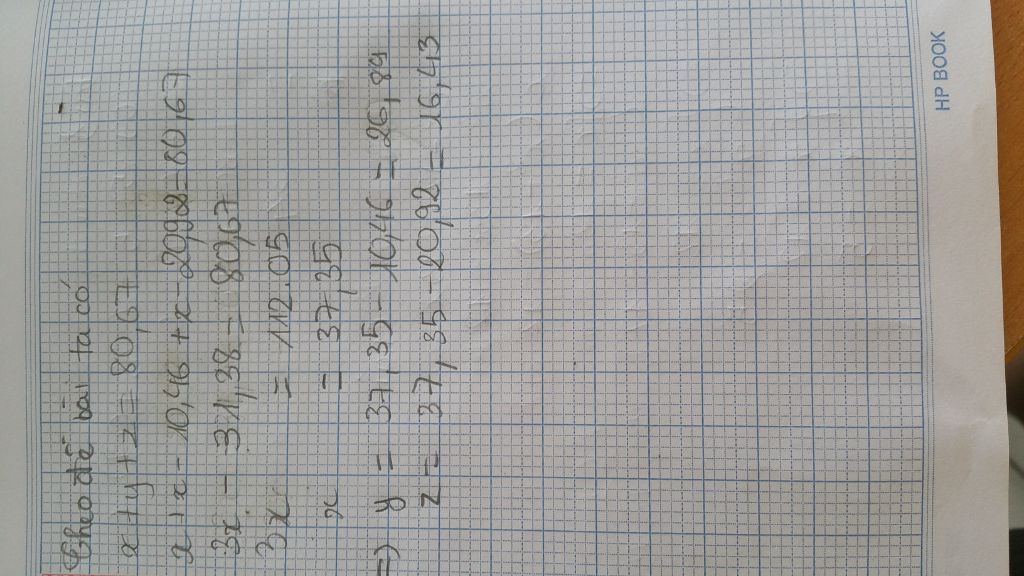 Theo đề bài ta có
x + y + z = 80,67
x + x - 10,46 + x - 20,92 = 80,67
3x - 31,38 = 80,67
3x = 112.05
x = 37,35
=) y = 37,35 - 10,46 = 26,89
z = 37,35 - 20,92 = 16,43
HP BOOK